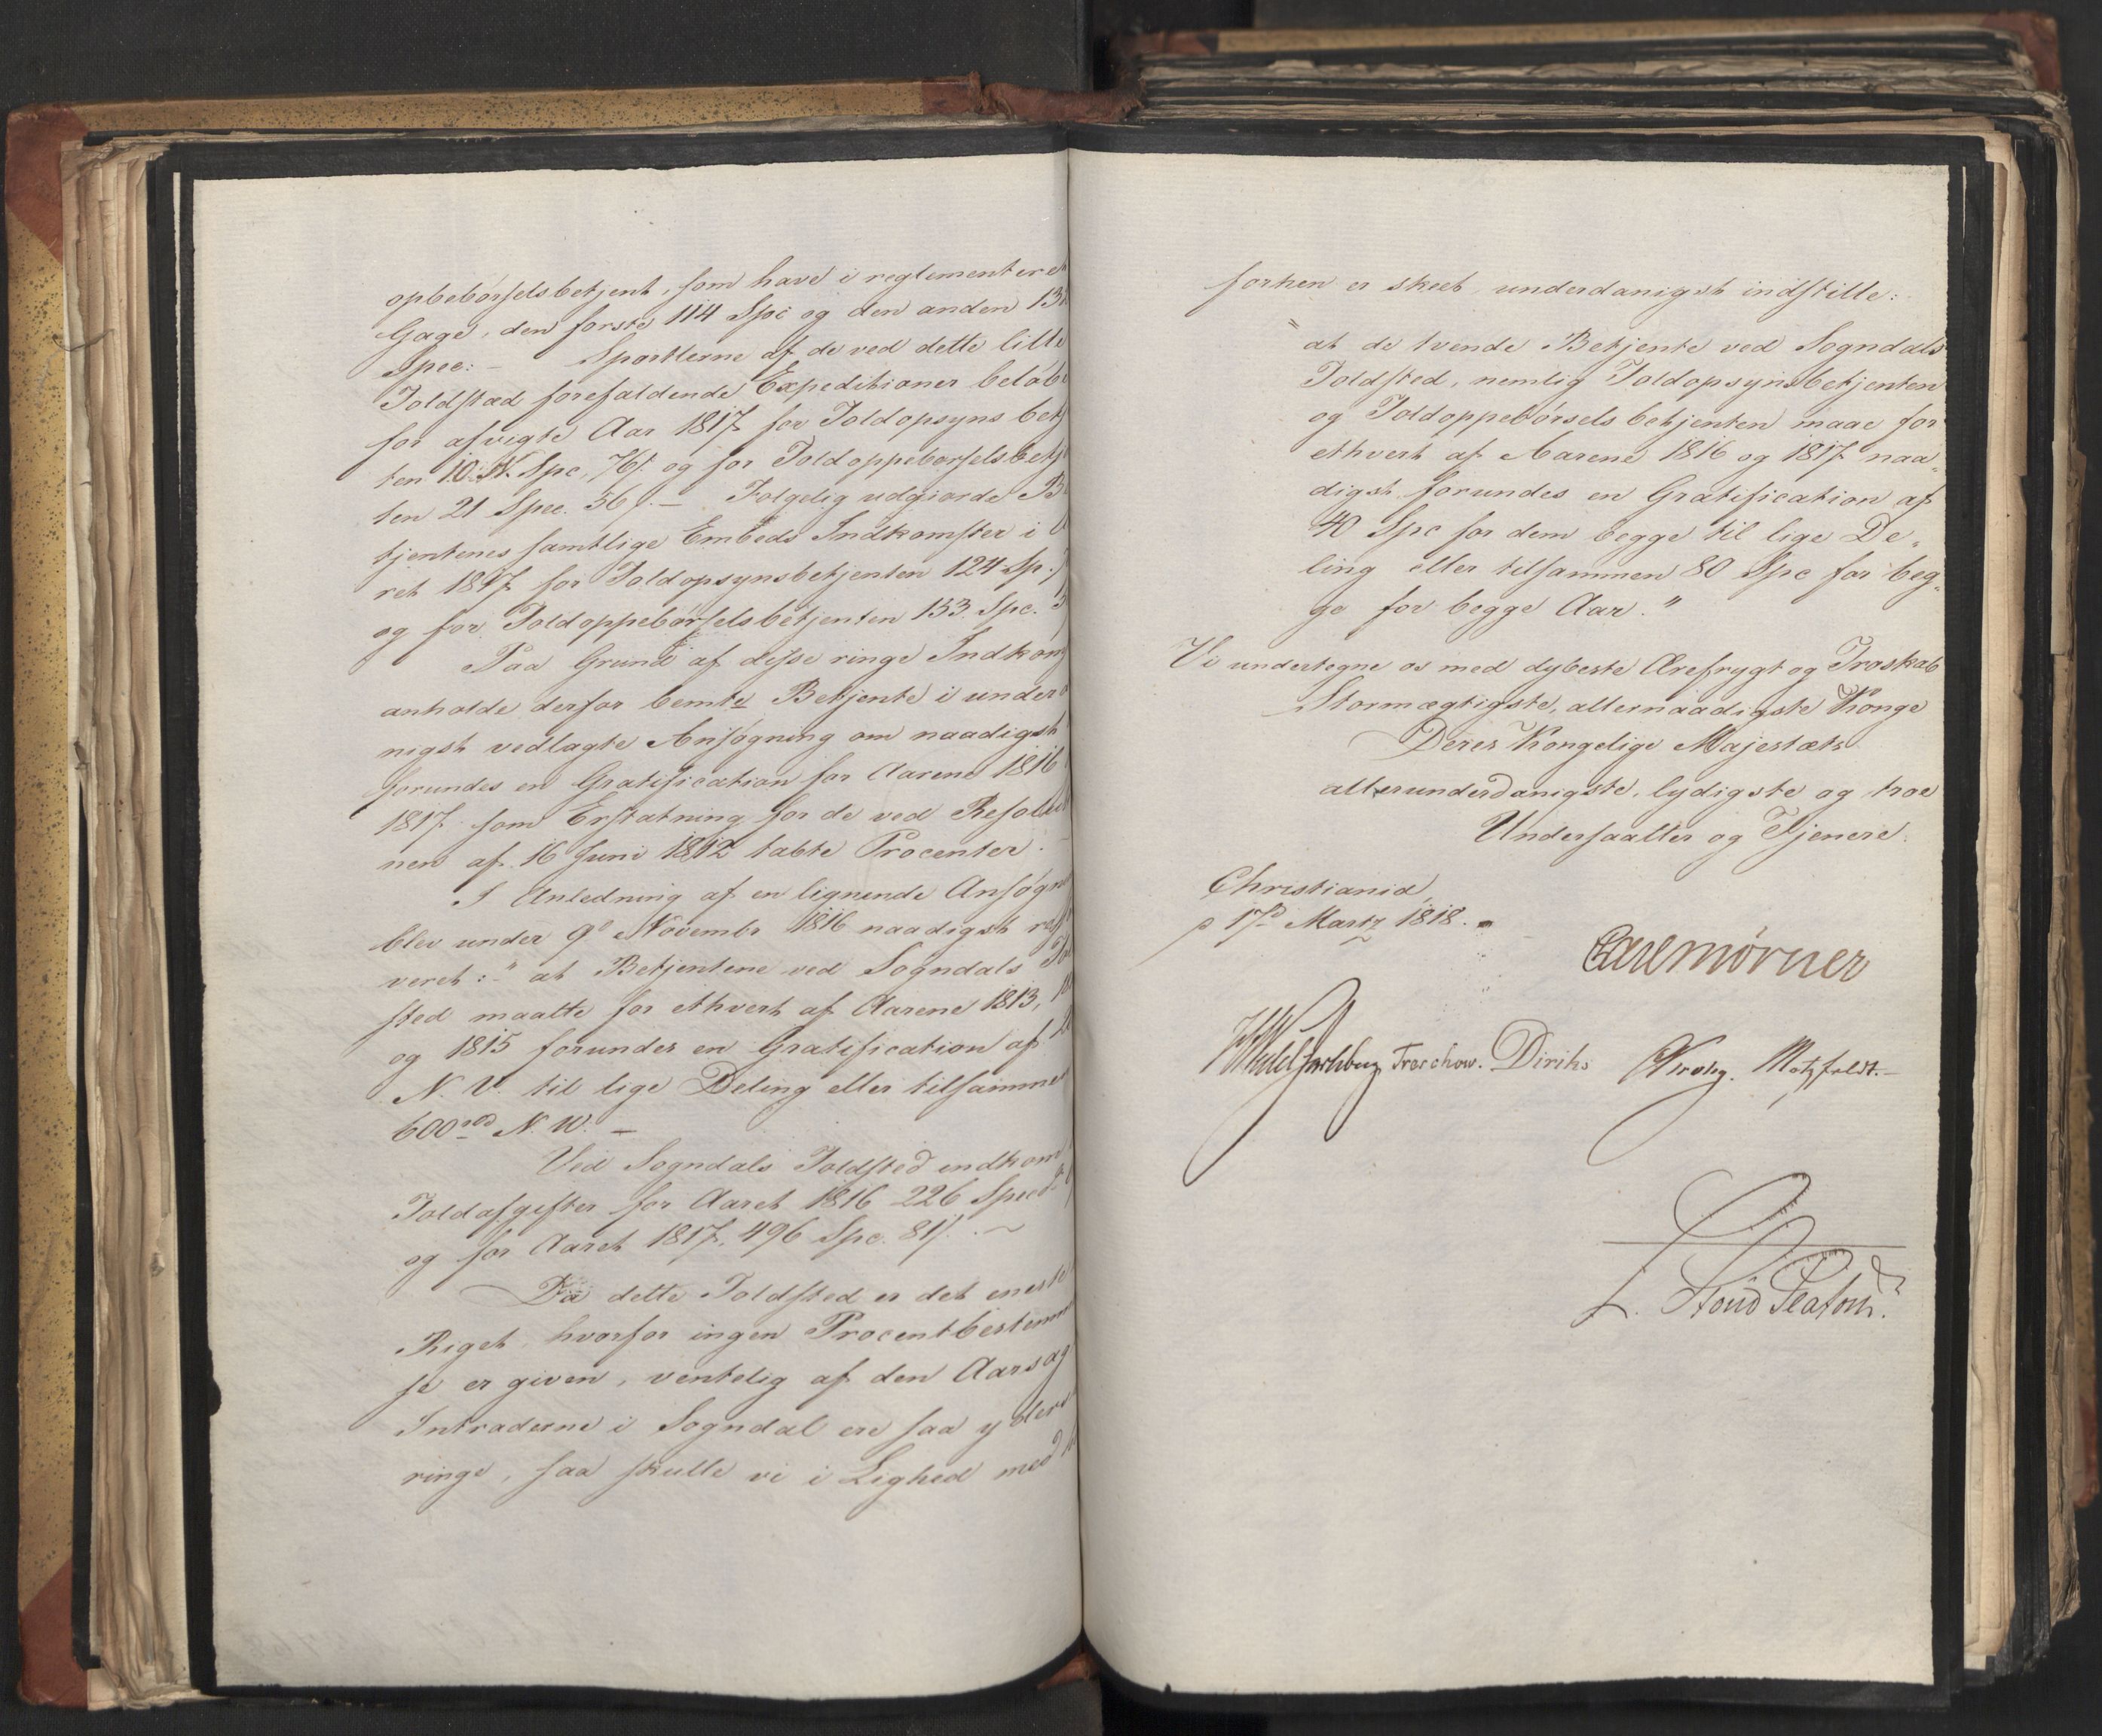 opbebørselsbetjent, som have i reglementeret
Gage, den første 114 Spc og den anden 132
Spec: - Sportlerne af de ved dette lille
Toldstæd forefaldende Expeditioner beløbe
for afvigte Aar 1817 for Toldopsyns betj
ten 10 N. Spc. 76 s. og for Toldoppebørselsbetj
ten 21 Spec. 56 s. - Følgelig udgiorde B
tjentenes samtlige Embeds Indkomster i
ret 1817 for Toldopsynsbetjenten 124 Sp.
og for Toldoppebørselsbetjenten 153 Spc.
Paa Grund af disse ringe Indkom
anholde derfor bemte Betjente i under
nigst vedlagte Ansøgning om naadigst
forundes en Gratification for Aarene 1816
1817 som Erstatning for de ved Resoluti
nen af 16 Juni 1812 tabte Procenter. -
I Anledning af en lignende Ansøgn
blev under 9d Novembr 1816 naadigst res
veret: " at Betjentene ved Sogndals Tol
sted maatte for ethvert af Aarene 1813,
og 1815 forundes en Gratification af
N. V. til lige Deling eller tilsammen
600 rbd N. W. -
Ved Sogndals Toldsted indkom
Toldafgifter for Aaret 1816 226 Specd.
og for Aaret 1817, 496 Spc. 81 s. -
Da dette Toldsted er det eneste
Riget, hvorfor ingen Procentbestemm
se er given, ventelig af den Aarsag
Intraderne i Sogndal ere saa yderst
ringe, saa skulle vi i Lighed med
forhen er skeet underdanigst indstille:
" at de tvende Betjente ved Sogndals
Toldsted, nemlig Toldopsynsbetjenten
og Toldoppebørsels betjenten maae for
ethvert af Aarene 1816 og 1817 naa„
digst forundes en Gratification af
40 Spc for dem begge til lige De„
ling eller tilsammen 80 Spc for beg„
ge for begge Aar."
Vi undertegne os med dybeste Ærefrygt og Troskab
Stormægtigste, allernaadigste Konge
Deres Kongelige Majestæts
allerunderdanigste, lydigste og troe
Undersaatter og Tjenere.
Christiania,
p 17d Martz 1818.
Carl Mörner
HWedel Jarlsberg Treschow. Diriks CKrohg. Motzfeldt. -
L. Stoud Platou.